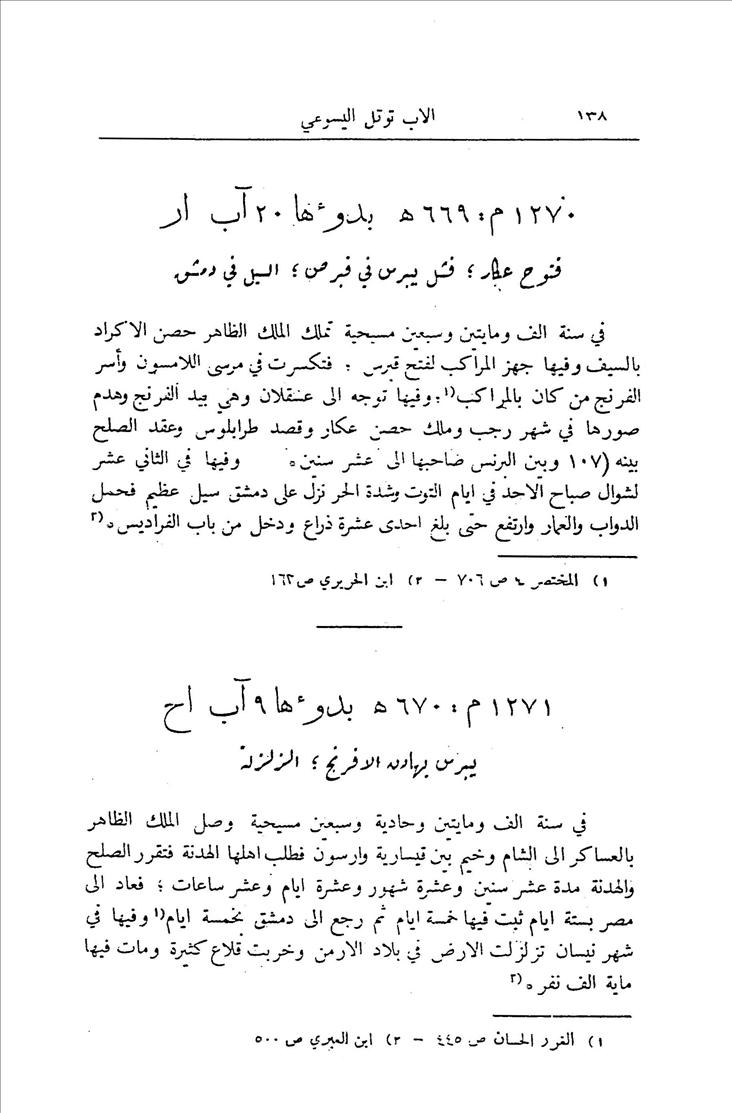 ١٣٨ الاب توتل اليسوعي
١٢٧٠ م : ٦٦٩ ه بدوءها ٢٠ آب ار
فتوح عكار ؛ فشل بيبرس في قبرص ؛ السيل في دمشق
في سنة الف ومايتين وسبعين مسيحية تملك الملك الظاهر حصن الاكراد
بالسيف وفيها جهز المراكب لفتح قبرس : فتكسرت في مرسى اللامسون وأسر
الفرنج من كان بالمراكب(١ : وفيها توجه الى عسقلان وهي بيد الفرنج وهدم
صورها في شهر رجب وملك حصن عكار وقصد طرابلوس وعقد الصلح
بينه (١٠٧ وبين البرنس صاحبها الى عشر سنين ه وفيها في الثاني عشر
لشوال صباح الاحد في ايام التوت وشدة الحر نزل على دمشق سيل عظيم فحمل
الدواب والعمار وارتفع حتى بلغ احدى عشرة ذراع ودخل من باب الفراديس ه(٢
١) المختصر ٤ ص ٧٠٦ – ٢) ابن الحريري ص ١٦٢
١٢٧١ م : ٦٧٠ ه بدوءها ٩ آب اح
بيبرس يهادن الافرنج ؛ الزلزلة
في سنة الف ومايتين وحادية وسبعين مسيحية وصل الملك الظاهر
بالعساكر الى الشام وخيم بين قيسارية وارسون فطلب اهلها الهدنة فتقرر الصلح
والهدنة مدة عشر سنين وعشرة شهور وعشرة ايام وعشر ساعات ؛ فعاد الى
مصر بستة ايام ثبت فيها خمسة ايام ثم رجع الى دمشق بخمسة ايام(١ وفيها في
شهر نيسان تزلزلت الارض في بلاد الارمن وخربت قلاع كثيرة ومات فيها
ماية الف نفر ه(٢
١) الغرر الحسان ص ٤٤٥ – ٢) ابن العبري ص ٥٠٠